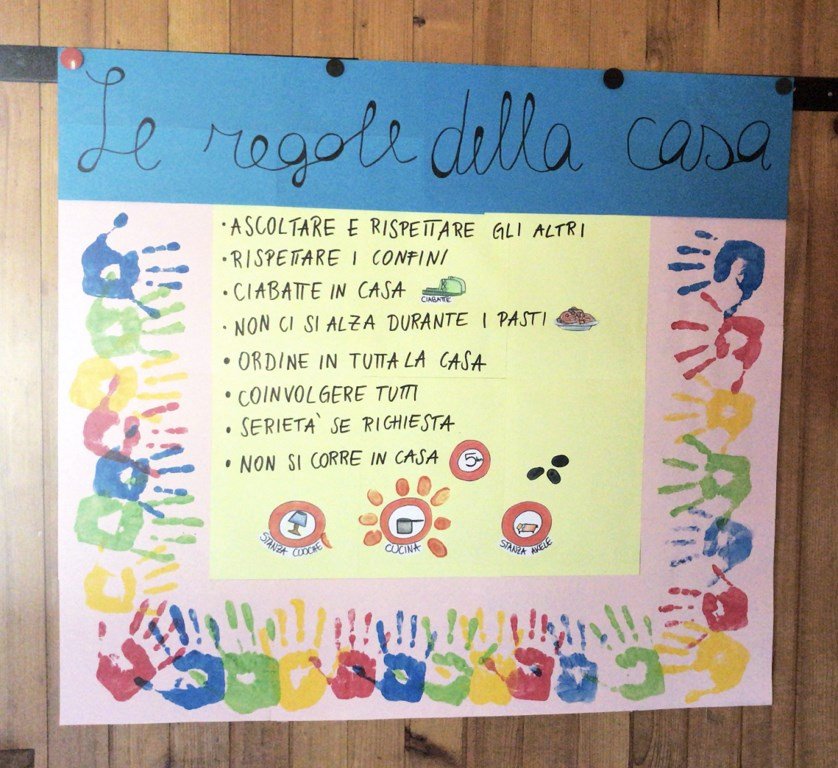 Le regole della casa
• ASCOLTARE E RISPETTARE GLI ALTRI
• RISPETTARE I CONFINI
• CIABATTE IN CASA
CIABATTE
• NON CI SI ALZA DURANTE I PASTI
• ORDINE IN TUTTA LA CASA
• COINVOLGERE TUTTI
• SERIETA' SE RICHIESTA
• NON SI CORRE IN CASA
5
STANZA CUOCHE
CUCINA
STANZA AKELE